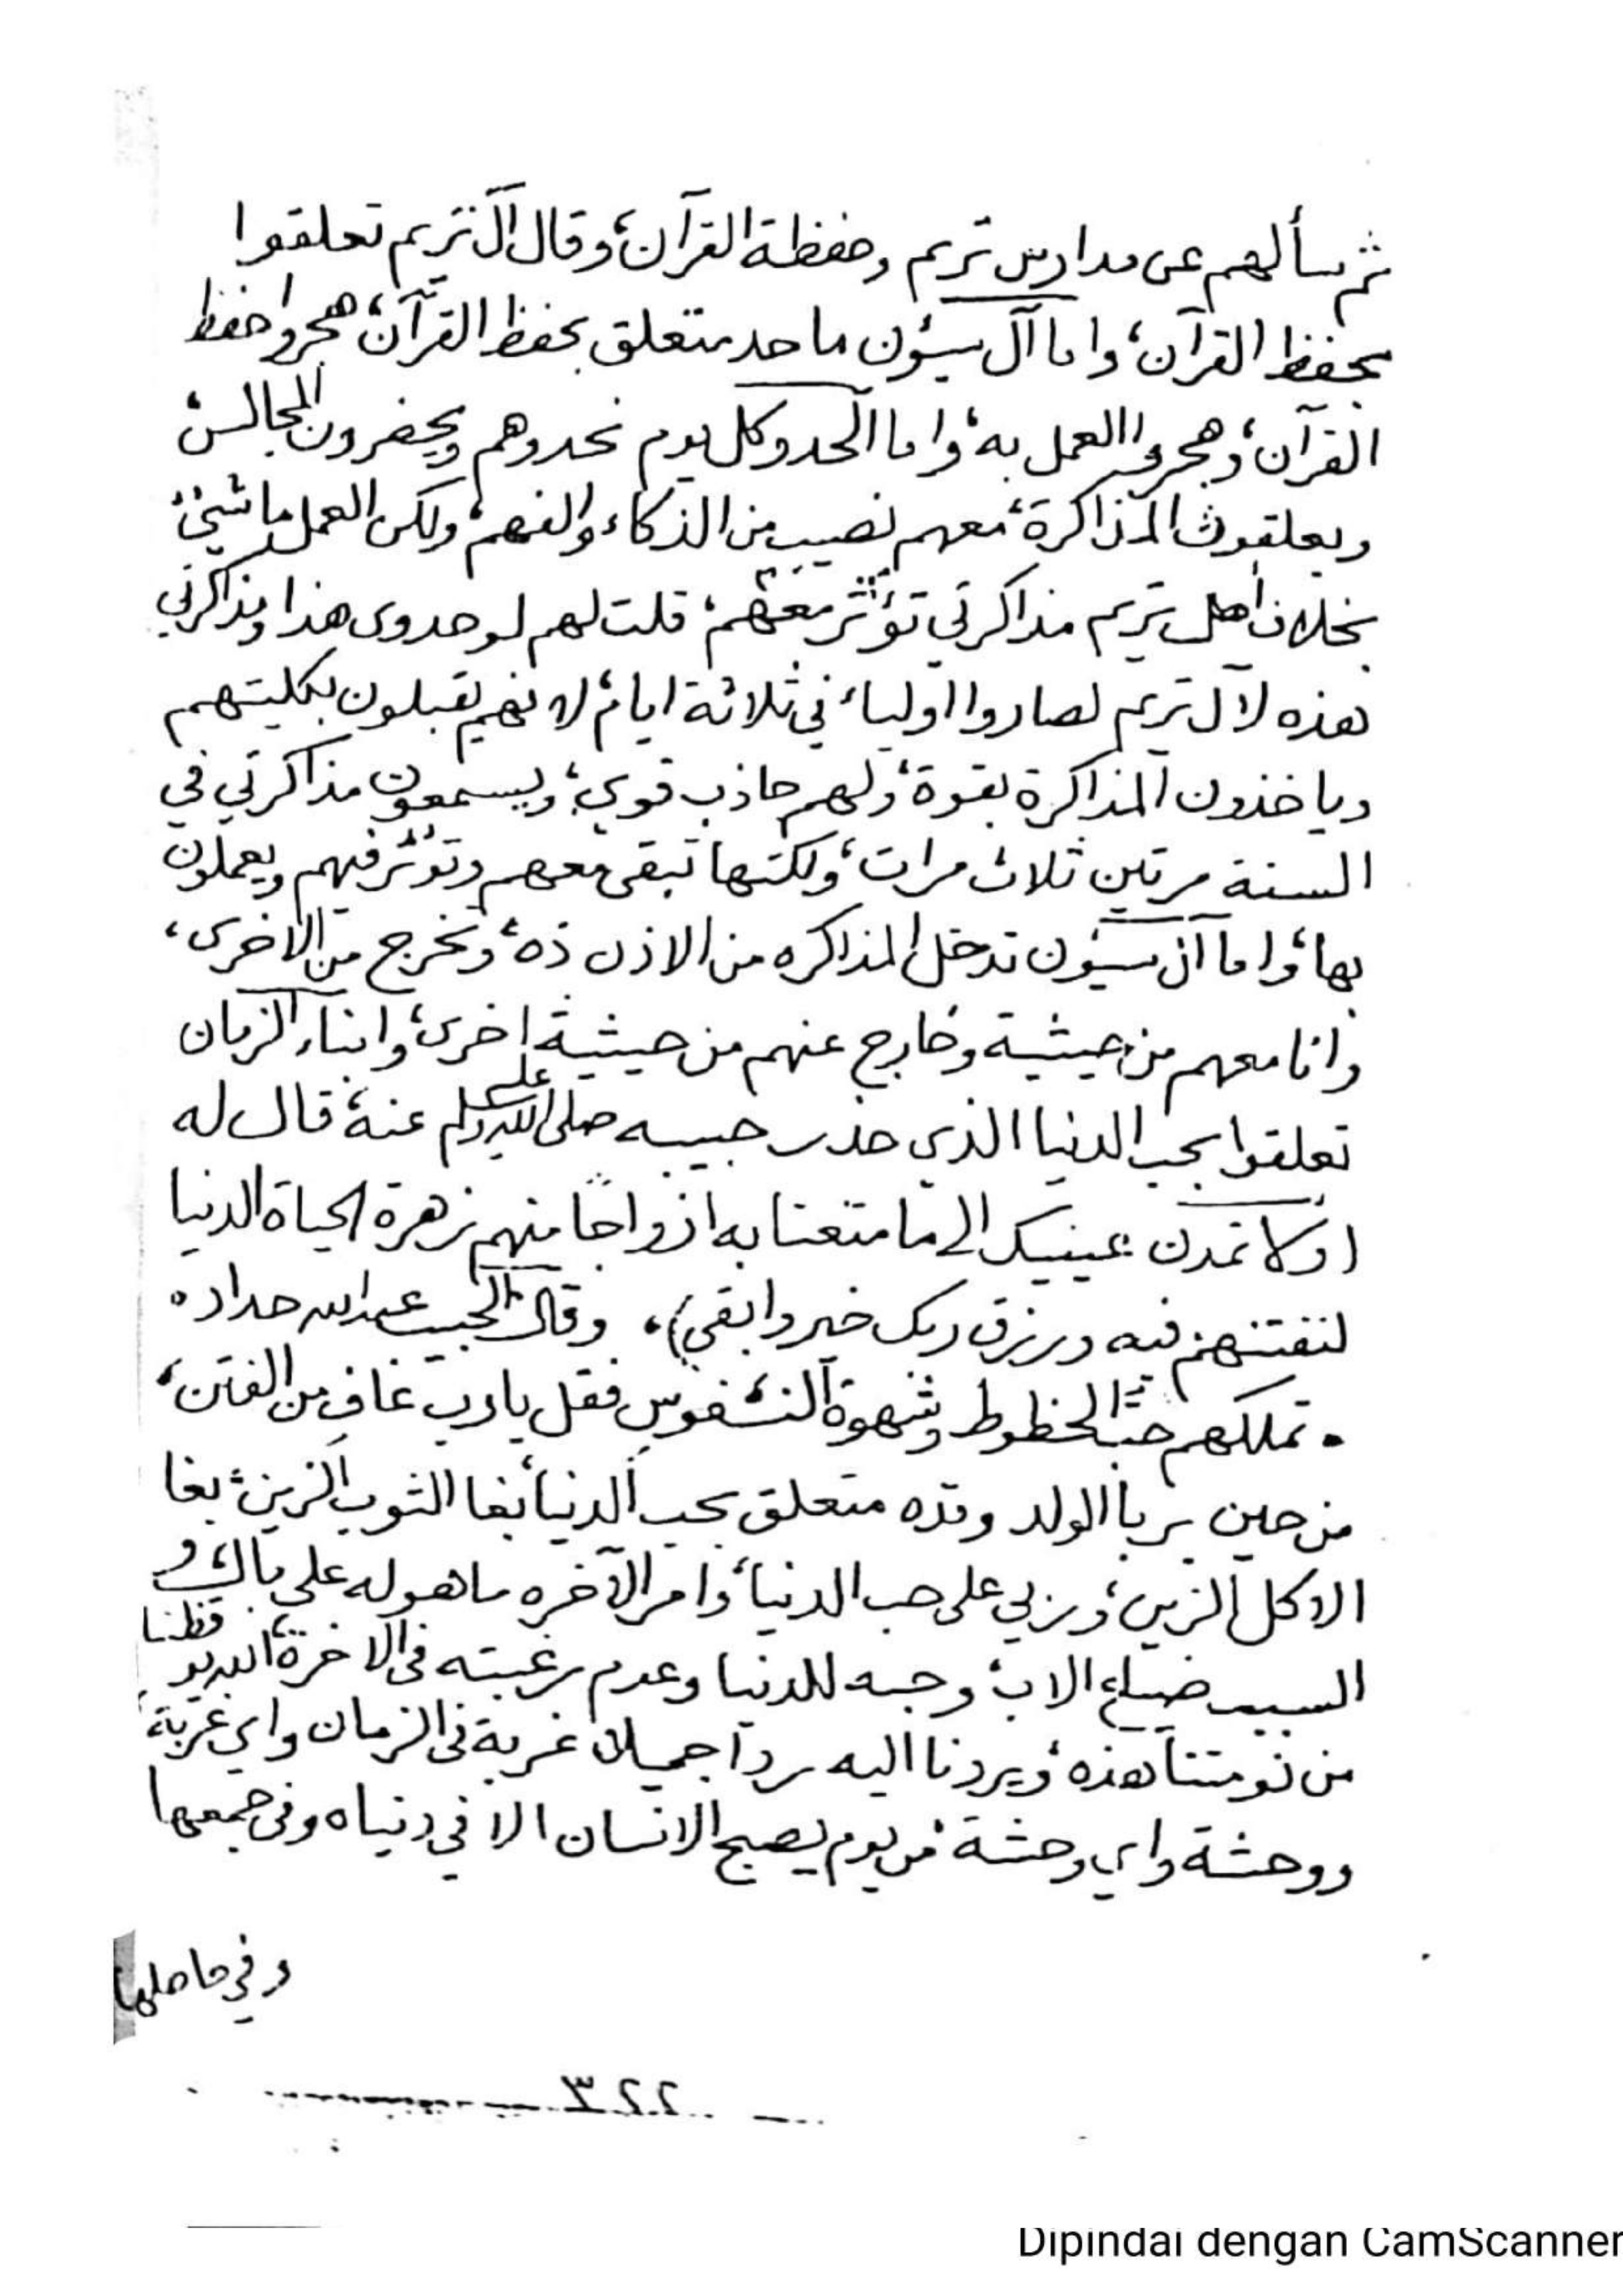 ثم سألهم عن مدارس تريم وحفظة القرآن، وقال آل تريم تعلقوا
بحفظ القرآن، واما آل سيئون ما حد متعلق بحفظ القرآن، هجروا حفظ
القرآن، وهجروا العمل به، واما الحدو كل يوم نحدوهم ويحضرون المجالس،
ويعلقون المذاكرة، معهم نصيب من الذكاء والفهم، ولكن العمل ماشيء،
بخلاف اهل تريم مذاكرتي تؤثر معهم، قلت لهم لو حدوى هذا ومذاكرتي
هذه لآل تريم لصاروا اولياء في ثلاثة ايام، لانهم يقبلون بكليتهم
وياخذون المذاكرة بقوة، ولهم جاذب قوي، ويسمعون مذاكرتي في
السنة مرتين ثلاث مرات، ولكنها تبقى معهم وتؤثر فيهم ويعملون
بها، واما آل سيئون تدخل المذاكره من الاذن ذه، وتخرج من الاخرى،
وانا معهم من حيثية وخارج عنهم من حيثية اخرى، وابناء الزمان
تعلقوا بحب الدنيا الذي حذر حبيبه صلى الله عليه وسلم عنه، قال له
(ولا تمدن عينيك الى ما متعنا به ازواجا منهم زهرة الحياة الدنيا
لنفتنهم فيه ورزق ربك خير وابقى)، وقال الحبيب عبدالله حداد ه
ه تملكهم حب الحظوظ وشهوة النفوس فقل يارب عاف من الفتن،
من حين يربا الولد وقده متعلق بحب الدنيا، بغا الثوب الزين، بغا
الاكل الزين، وربي على حب الدنيا، وامر الآخره ماهو له على بال، و
السبب ضياع الاب، وحبه للدنيا وعدم رغبته في الاخرة، الله يوقظنا
من نومتنا هذه، ويردنا اليه رداً جميلا، غربة في الزمان واي غربة،
ووحشة واي وحشة، من يوم يصبح الانسان الا في دنياه وفي جمعها
وفي حاصلها
٣٢٢
Dipindai dengan CamScanner